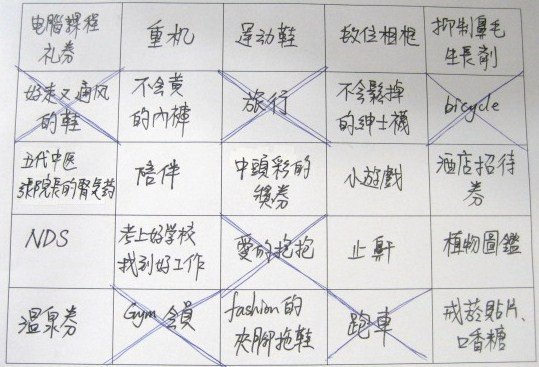 电腦課程
礼券
重机
運动鞋
数位相框
抑制鼻毛
生長劑
好走又通风
的鞋
不会黄
的內褲
旅行
不会鬆掉
的紳士襪
bicycle
五代中医
張院長的腎臭药
陪伴
中頭彩的
獎券
小遊戲
酒店招待
券
NDS
考上好学校
找到好工作
愛的抱抱
止鼾
植物圖鑑
温泉券
Gym 会員
fashion的
夾腳拖鞋
跑車
戒菸貼片、
口香糖